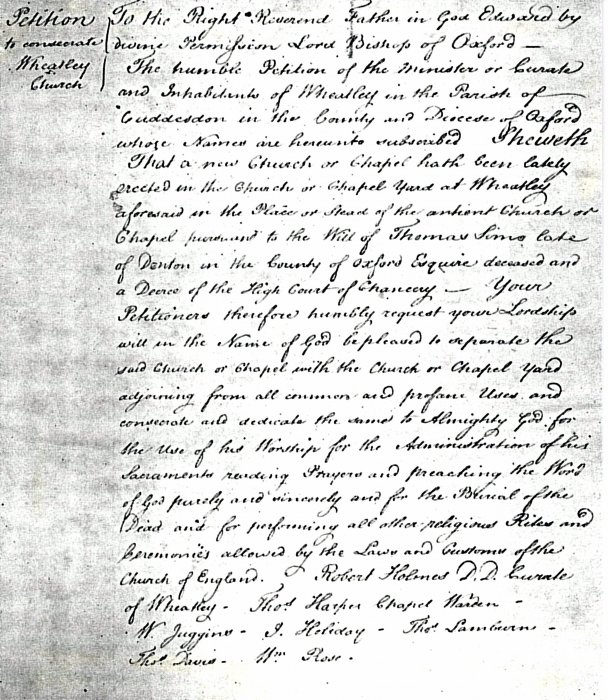 Petition
to consecrate
Wheatley
Church
To the Right Reverend Father in God Edward by
divine Permission Lord Bishop of Oxford —
The humble Petition of the Minister or Curate
and Inhabitants of Wheatley in the Parish of —
Cuddesdon in the County and Diocese of Oxford
whose Names are hereunto subscribed Sheweth
That a new Church or Chapel hath been lately
erected in the Church or Chapel Yard at Wheatley
aforesaid in the Place or Stead of the antient Church or
Chapel pursuant to the Will of Thomas Sims late
of Denton in the County of Oxford Esquire deceased and
a Decree of the High Court of Chancery — Your
Petitioners therefore humbly request your Lordship
will in the Name of God be pleased to separate the
said Church or Chapel with the Church or Chapel Yard
adjoining from all common and profane Uses and
consecrate and dedicate the same to Almighty God for
the Use of his Worship for the Administration of his
Sacraments reading Prayers and preaching the Word
of God purely and sincerely and for the Burial of the
Dead and for performing all other religious Rites and
Ceremonies allowed by the Laws and Customs of the
Church of England. Robert Holmes D.D. Curate
of Wheatley - Thos Harper Chapel Warden -
W. Juggins - J. Holiday - Thos Lamburn -
Thos Davis - Wm Rose -